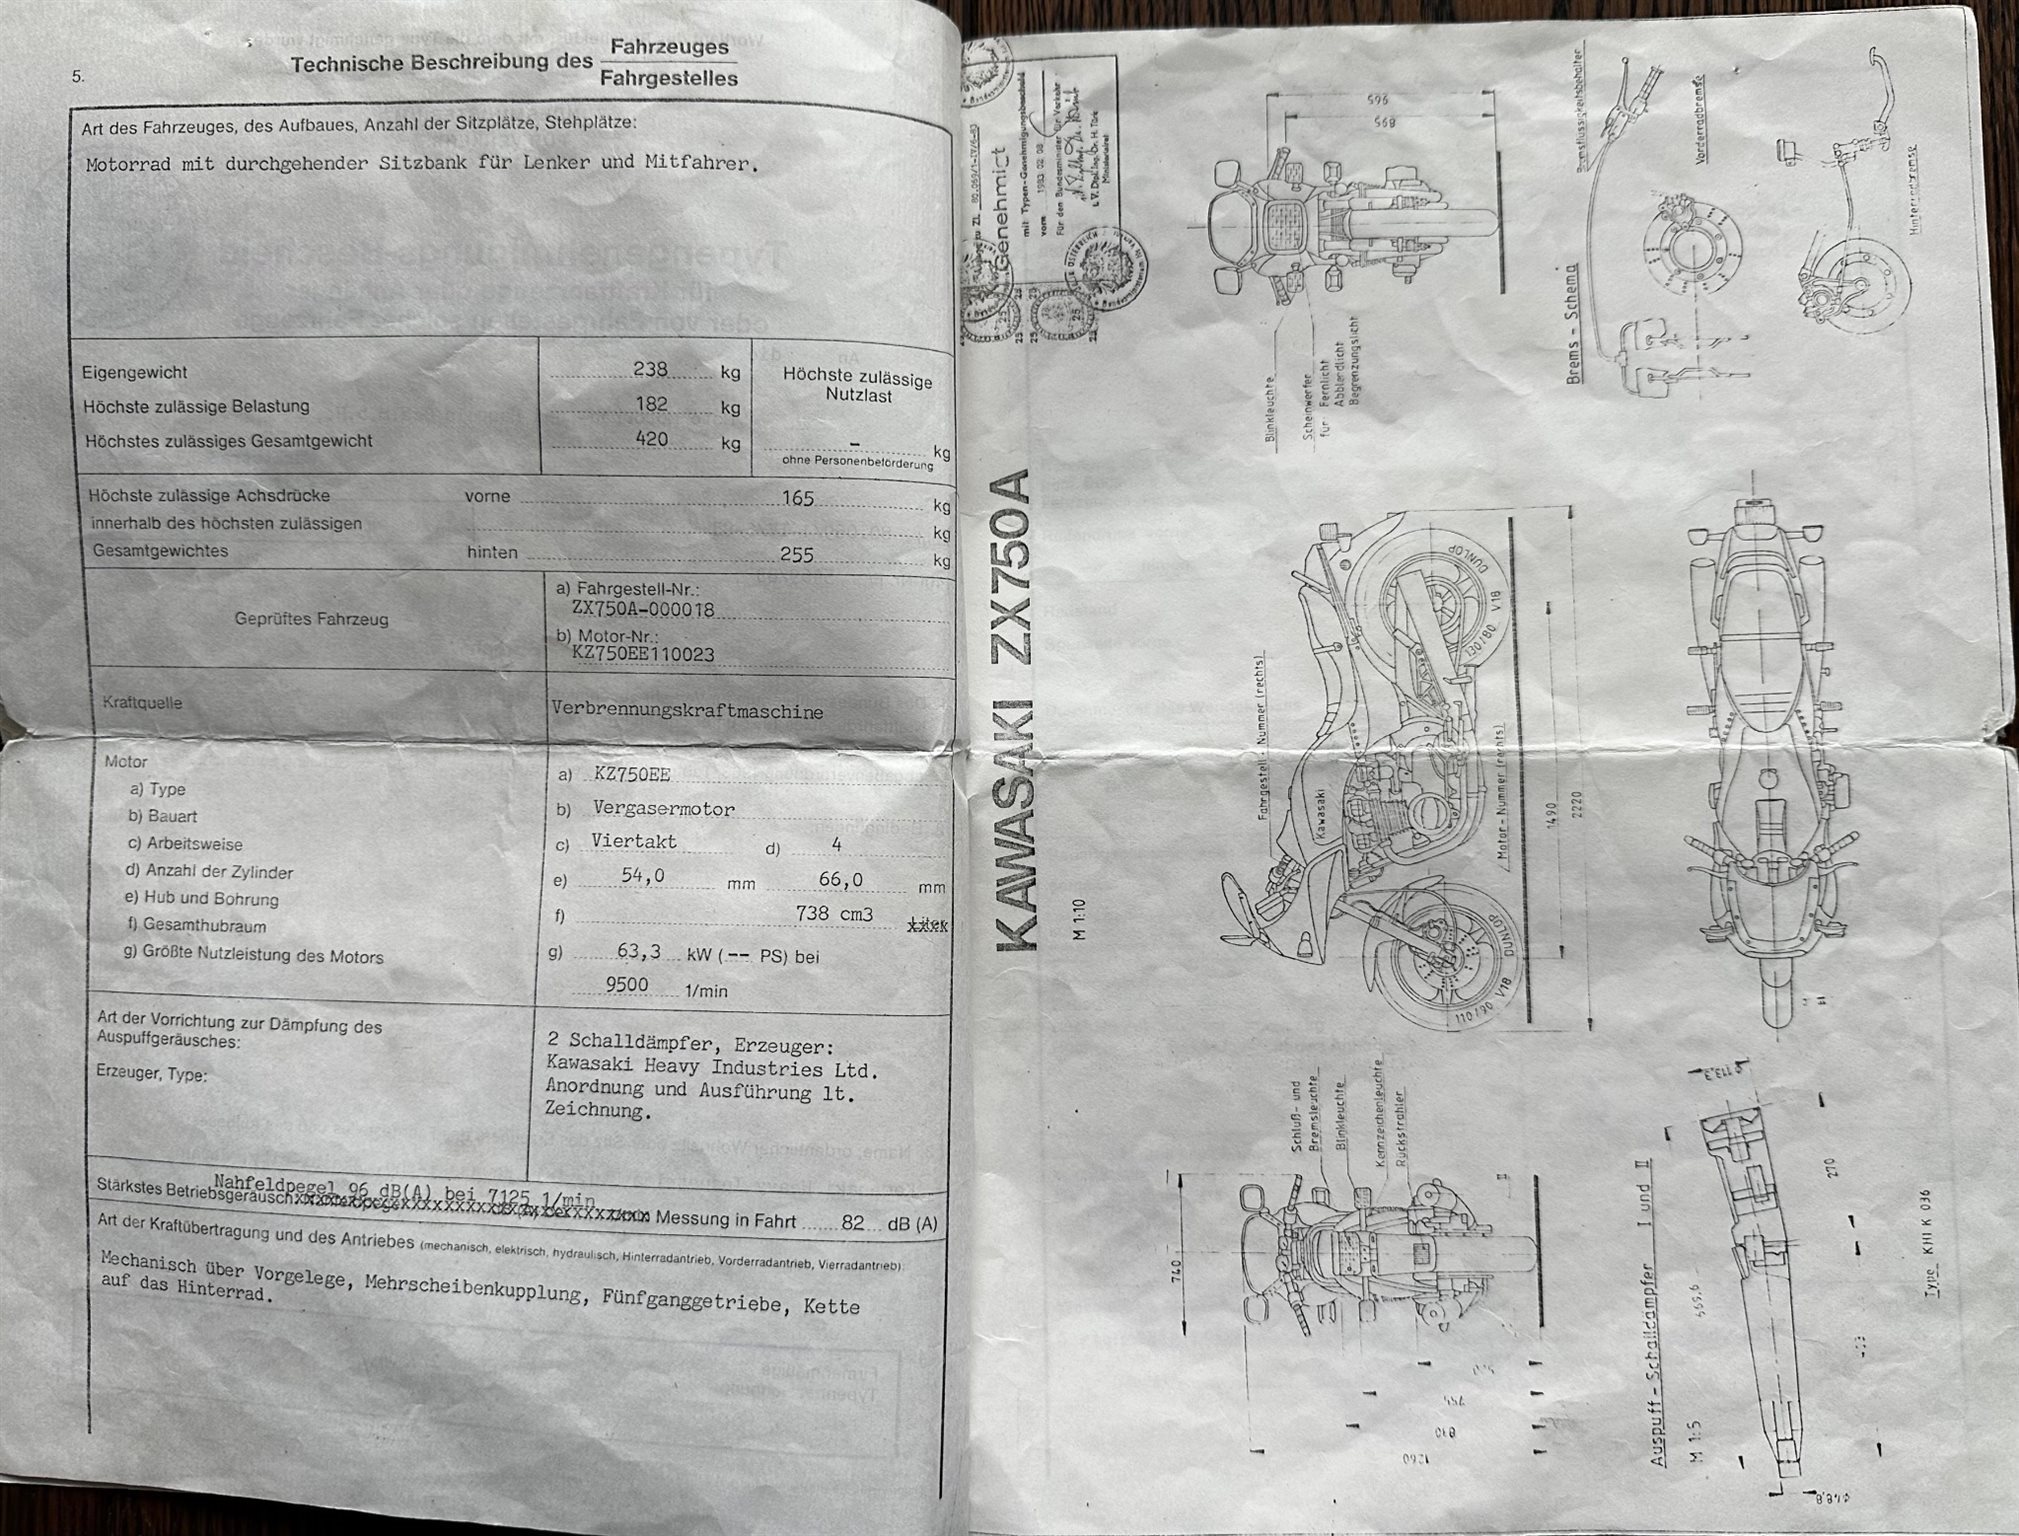 5.
Technische Beschreibung des Fahrzeuges
Fahrgestelles
Art des Fahrzeuges, des Aufbaues, Anzahl der Sitzplätze, Stehplätze:
Motorrad mit durchgehender Sitzbank für Lenker und Mitfahrer.
Eigengewicht 238 kg
Höchste zulässige Belastung 182 kg
Höchstes zulässiges Gesamtgewicht 420 kg
Höchste zulässige
Nutzlast
– kg
ohne Personenbeförderung
Höchste zulässige Achsdrücke vorne 165 kg
innerhalb des höchsten zulässigen kg
Gesamtgewichtes hinten 255 kg
Geprüftes Fahrzeug
a) Fahrgestell-Nr.:
ZX750A-000018
b) Motor-Nr.:
KZ750EE110023
Kraftquelle Verbrennungskraftmaschine
Motor
a) Type
b) Bauart
c) Arbeitsweise
d) Anzahl der Zylinder
e) Hub und Bohrung
f) Gesamthubraum
g) Größte Nutzleistung des Motors
a) KZ750EE
b) Vergasermotor
c) Viertakt d) 4
e) 54,0 mm 66,0 mm
f) 738 cm3 Liter
g) 63,3 kW (-- PS) bei
9500 1/min
Art der Vorrichtung zur Dämpfung des
Auspuffgeräusches:
Erzeuger, Type:
2 Schalldämpfer, Erzeuger:
Kawasaki Heavy Industries Ltd.
Anordnung und Ausführung lt.
Zeichnung.
Nahfeldpegel 96 dB(A) bei 7125 1/min
Stärkstes Betriebsgeräusch: Messung in Fahrt 82 dB (A)
Art der Kraftübertragung und des Antriebes (mechanisch, elektrisch, hydraulisch, Hinterradantrieb, Vorderradantrieb, Vierradantrieb):
Mechanisch über Vorgelege, Mehrscheibenkupplung, Fünfganggetriebe, Kette
auf das Hinterrad.
Genehmigt
mit Typen-Genehmigungsbescheid
vom 1983 02 08
Für den Bundesminister für Verkehr
Ministerialrat
ÖSTERREICH
25
25
25
25
KAWASAKI ZX750A
M 1:10
965
895
Blinkleuchte
Scheinwerfer
für Fernlicht
Abblendlicht
Begrenzungslicht
Fahrgestell - Nummer (rechts)
Kawasaki
Motor - Nummer (rechts)
DUNLOP
130/80 V18
DUNLOP
110/90 V18
1490
2220
Schluß- und
Bremsleuchte
Blinkleuchte
Kennzeichenleuchte
Rückstrahler
740
830
1260
Brems - Schema
Bremsflüssigkeitsbehälter
Vorderradbremse
Hinterradbremse
Auspuff - Schalldämpfer I und II
M 1:5
270
Type KHI K 036